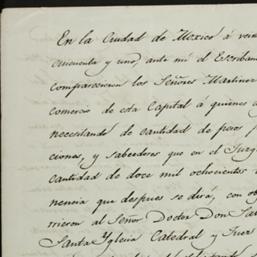 En la Ciudad de Mexico à vein
cincuenta y uno, ante mi el Escriban
comparecieron los Señores Martinez
comercio de esta Capital à quienes
necesitando de cantidad de pesos p
ciones, y sabedores que en el Juzg
cantidad de doce mil ochocientos
nencia que despues se derá, con ob
rrieron al Señor Doctor Don
Santa Yglesia Catedral y Juez